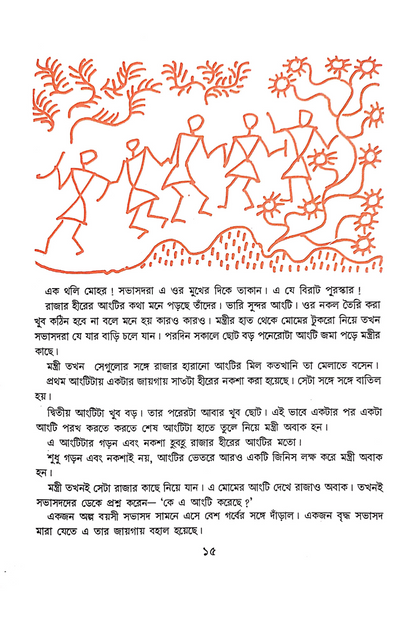 এক থলি মোহর ! সভাসদরা এ ওর মুখের দিকে তাকান। এ যে বিরাট পুরস্কার !
রাজার হীরের আংটির কথা মনে পড়ছে তাঁদের। ভারি সুন্দর আংটি। ওর নকল তৈরি করা
খুব কঠিন হবে না বলে মনে হয় কারও কারও। মন্ত্রীর হাত থেকে মোমের টুকরো নিয়ে তখন
সভাসদরা যে যার বাড়ি চলে যান। পরদিন সকালে ছোট বড় পনেরোটা আংটি জমা পড়ে মন্ত্রীর
কাছে।
মন্ত্রী তখন সেগুলোর সঙ্গে রাজার হারানো আংটির মিল কতখানি তা মেলাতে বসেন।
প্রথম আংটিটায় একটার জায়গায় সাতটা হীরের নকশা করা হয়েছে। সেটা সঙ্গে সঙ্গে বাতিল
হয়।
দ্বিতীয় আংটিটা খুব বড়। তার পরেরটা আবার খুব ছোট। এই ভাবে একটার পর একটা
আংটি পরখ করতে করতে শেষ আংটিটা হাতে তুলে নিয়ে মন্ত্রী অবাক হন।
এ আংটিটার গড়ন এবং নকশা হুবহু রাজার হীরের আংটির মতো।
শুধু গড়ন এবং নকশাই নয়, আংটির ভেতরে আরও একটি জিনিস লক্ষ করে মন্ত্রী অবাক
হন।
মন্ত্রী তখনই সেটা রাজার কাছে নিয়ে যান। এ মোমের আংটি দেখে রাজাও অবাক। তখনই
সভাসদদের ডেকে প্রশ্ন করেন— ‘কে এ আংটি করেছে ?’
একজন অল্প বয়সী সভাসদ সামনে এসে বেশ গর্বের সঙ্গে দাঁড়াল। একজন বৃদ্ধ সভাসদ
মারা যেতে এ তার জায়গায় বহাল হয়েছে।
১৫